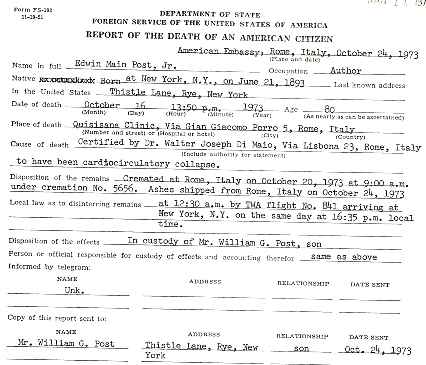 Form FS-192
DEPARTMENT OF STATE
FOREIGN SERVICE OF THE UNITED STATES OF AMERICA
REPORT OF THE DEATH OF AN AMERICAN CITIZEN
American Embassy, Rome, Italy, October 24, 1973
(Place and date)
Name in full Edwin Main Post, Jr. Occupation Author
Native Born at New York, N.Y., on June 21, 1893 Last known address
In the United States Thistle Lane, Rye, New York
Date of death October 16 13:50 p.m. 1973 Age 80
(Month) (Day) (Hour) (Minute) (Year) (As nearly as can be ascertained)
Place of death Quisisana Clinic, Via Gian Giacomo Porro 5, Rome, Italy
(Number and street) or (Hospital or hotel) (City) (Country)
Cause of death Certified by Dr. Walter Joseph Di Maio, Via Lisbona 23, Rome, Italy
(Include authority for statement)
to have been cardiocirculatory collapse.
Disposition of the remains Cremated at Rome, Italy on October 20, 1973 at 9:00 a.m.
under cremation No. 5656. Ashes shipped from Rome, Italy on October 24, 1973
Local law as to disinterring remains at 12:30 a.m. by TWA flight No. 841 arriving at
New York, N.Y. on the same day at 16:35 p.m. local
time.
Disposition of the effects In custody of Mr. William G. Post, son
Person or official responsible for custody of effects and accounting therefor same as above
Informed by telegram:
NAME ADDRESS RELATIONSHIP DATE SENT
Unk.
Copy of this report sent to:
NAME ADDRESS RELATIONSHIP DATE SENT
Mr. William G. Post Thistle Lane, Rye, New son Oct. 24, 1973
York